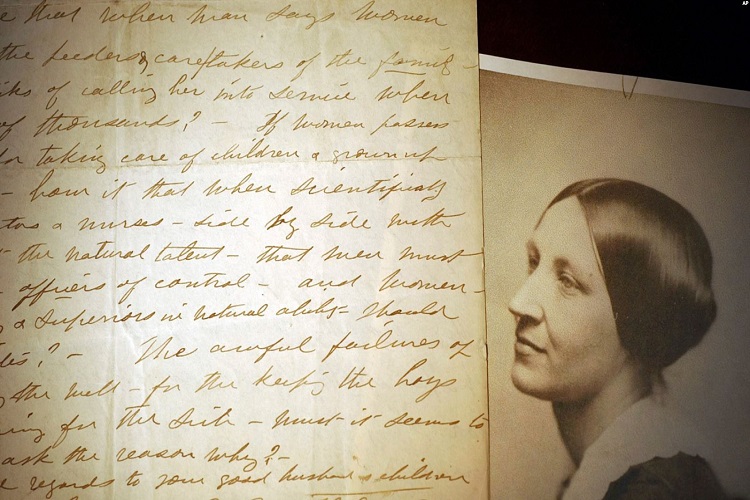 e that when man says women
the feeders & caretakers of the family -
of calling her into service when
of thousands? - If women possess
for taking care of children & grown up
- how it that when scientifically
a nurses - side by side with
the natural talent - that men must
officers of control - and women -
& superiors in natural ability - should
? - The awful failures of
the well - for the keeping the boys
ing for the sick - must it seems to
ask the reason why? -
e regards to your good husband & children
AP